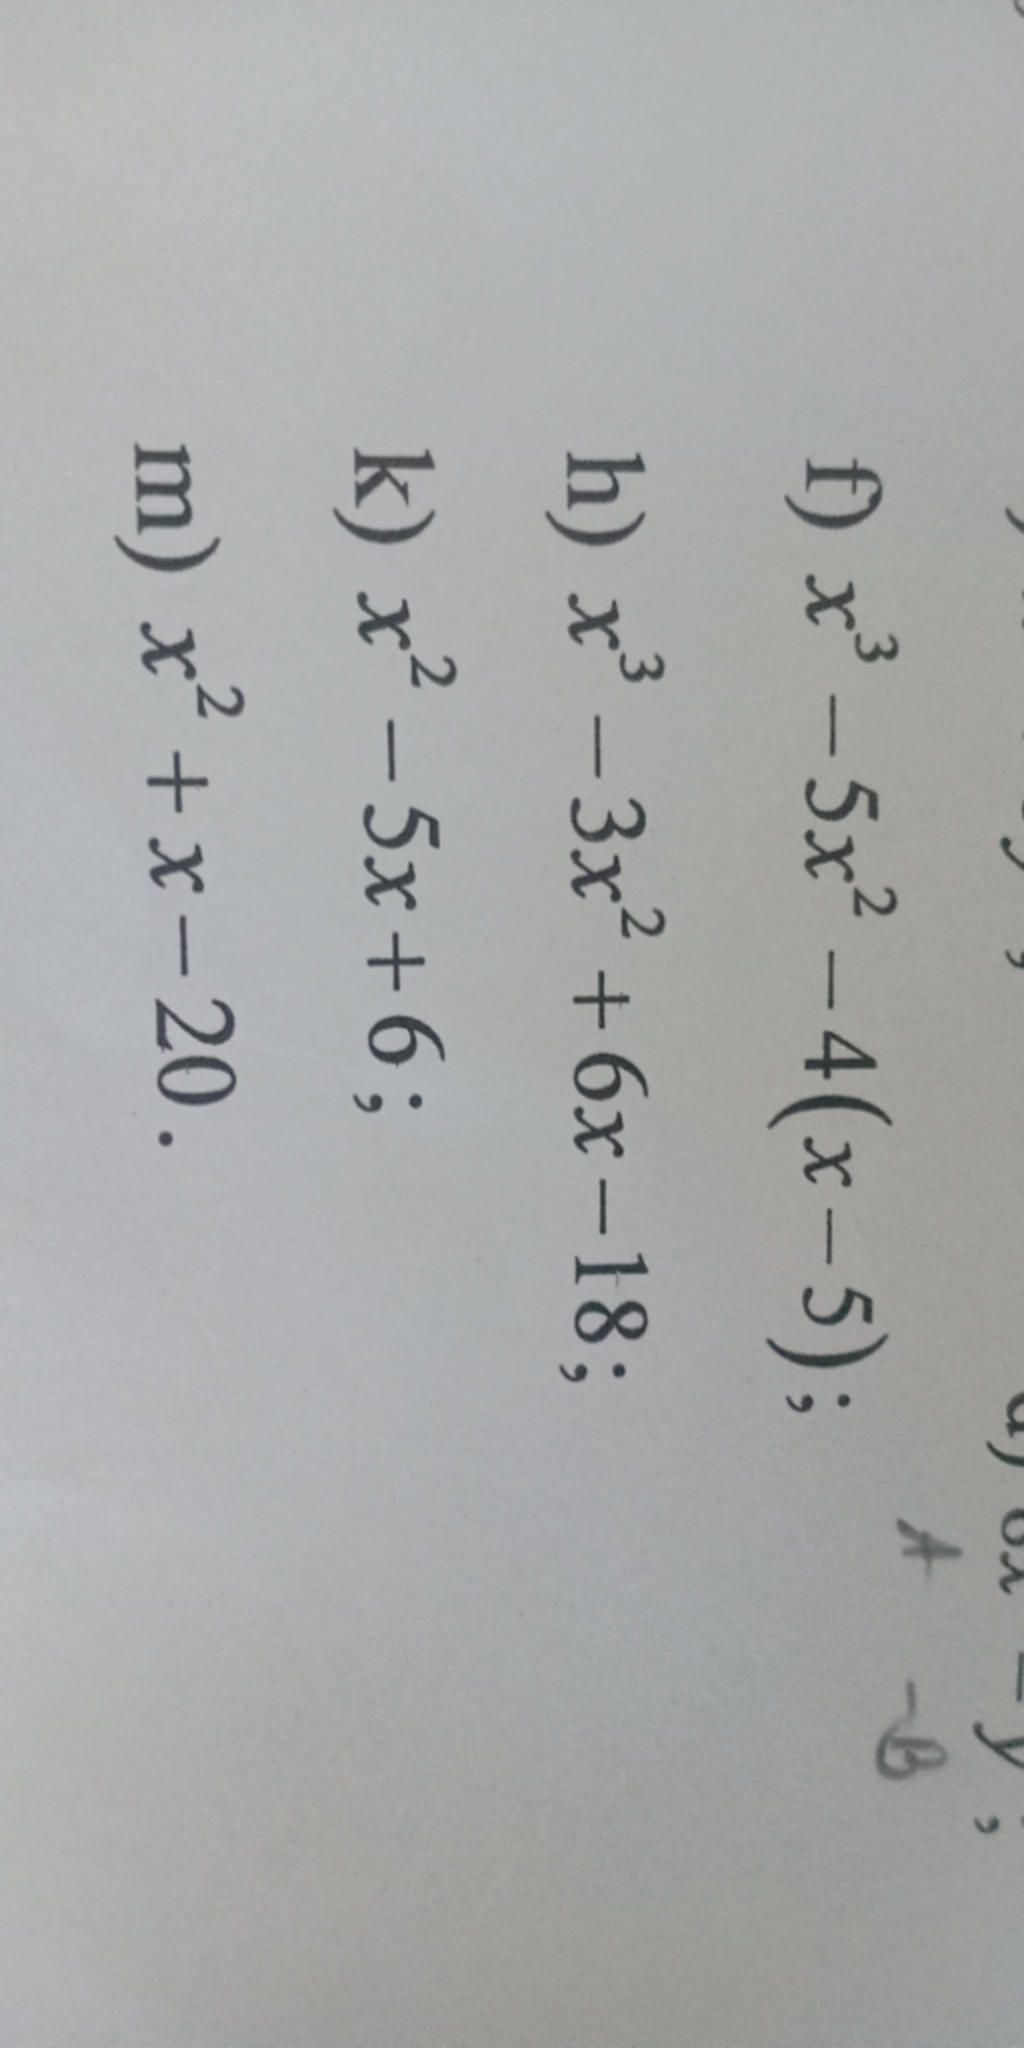 d) 8x³ – y³;
f) x³ – 5x² – 4(x – 5);
h) x³ – 3x² + 6x – 18;
k) x² – 5x + 6;
m) x² + x – 20.
A – B